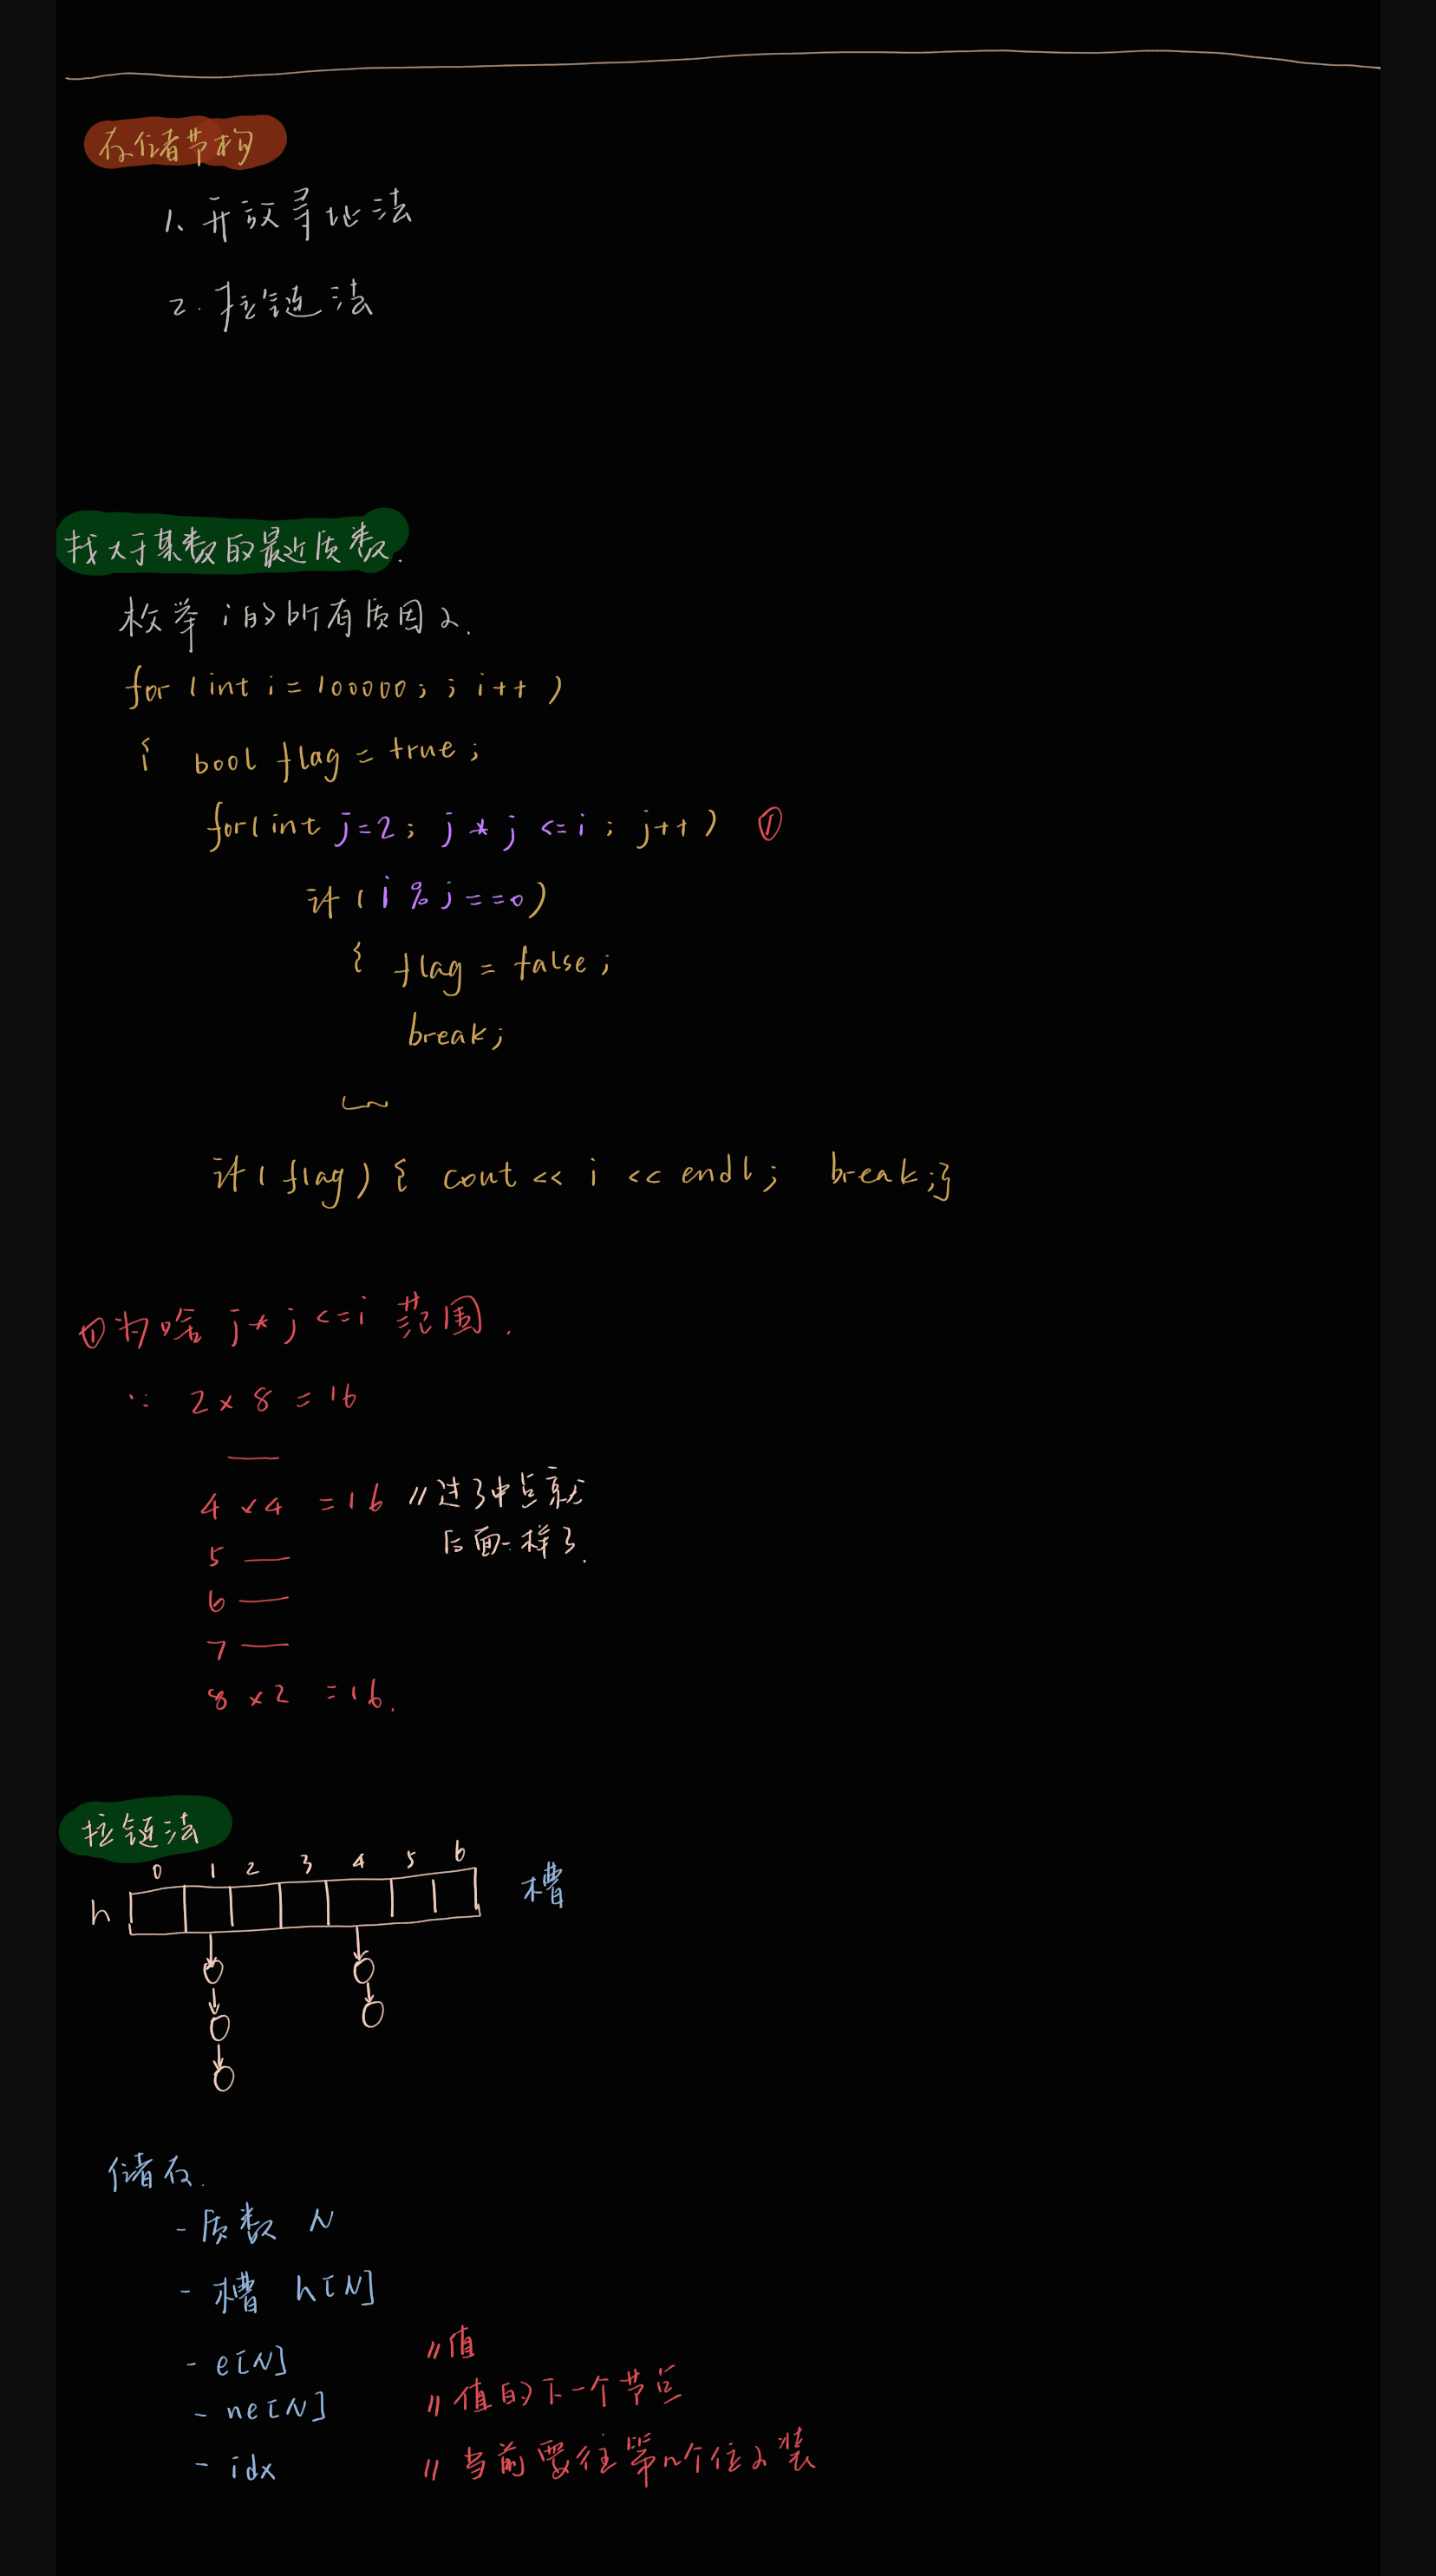 存储节构
1、开放寻址法
2.拉链法
找大于某数的最近质数.
枚举i的所有质因子.
for (int i=100000; ; i++)
{ bool flag = true;
for(int j=2; j * j <=i; j++) ①
if (i % j ==0)
{ flag = false;
break;
}
if (flag) { cout << i << endl; break;}
①为啥 j * j <=i 范围.
∵ 2 × 8 = 16
4 × 4 = 16 //过了中点就
后面一样了.
5 —
6 —
7 —
8 × 2 = 16.
拉链法
0 1 2 3 4 5 6
h 槽
储存.
- 质数 N
- 槽 h[N]
- e[N] //值
- ne[N] //值的下一个节点
- idx //当前要往第n个位子装